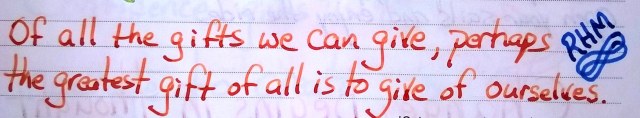 Of all the gifts we can give, perhaps RHM
the greatest gift of all is to give of ourselves.